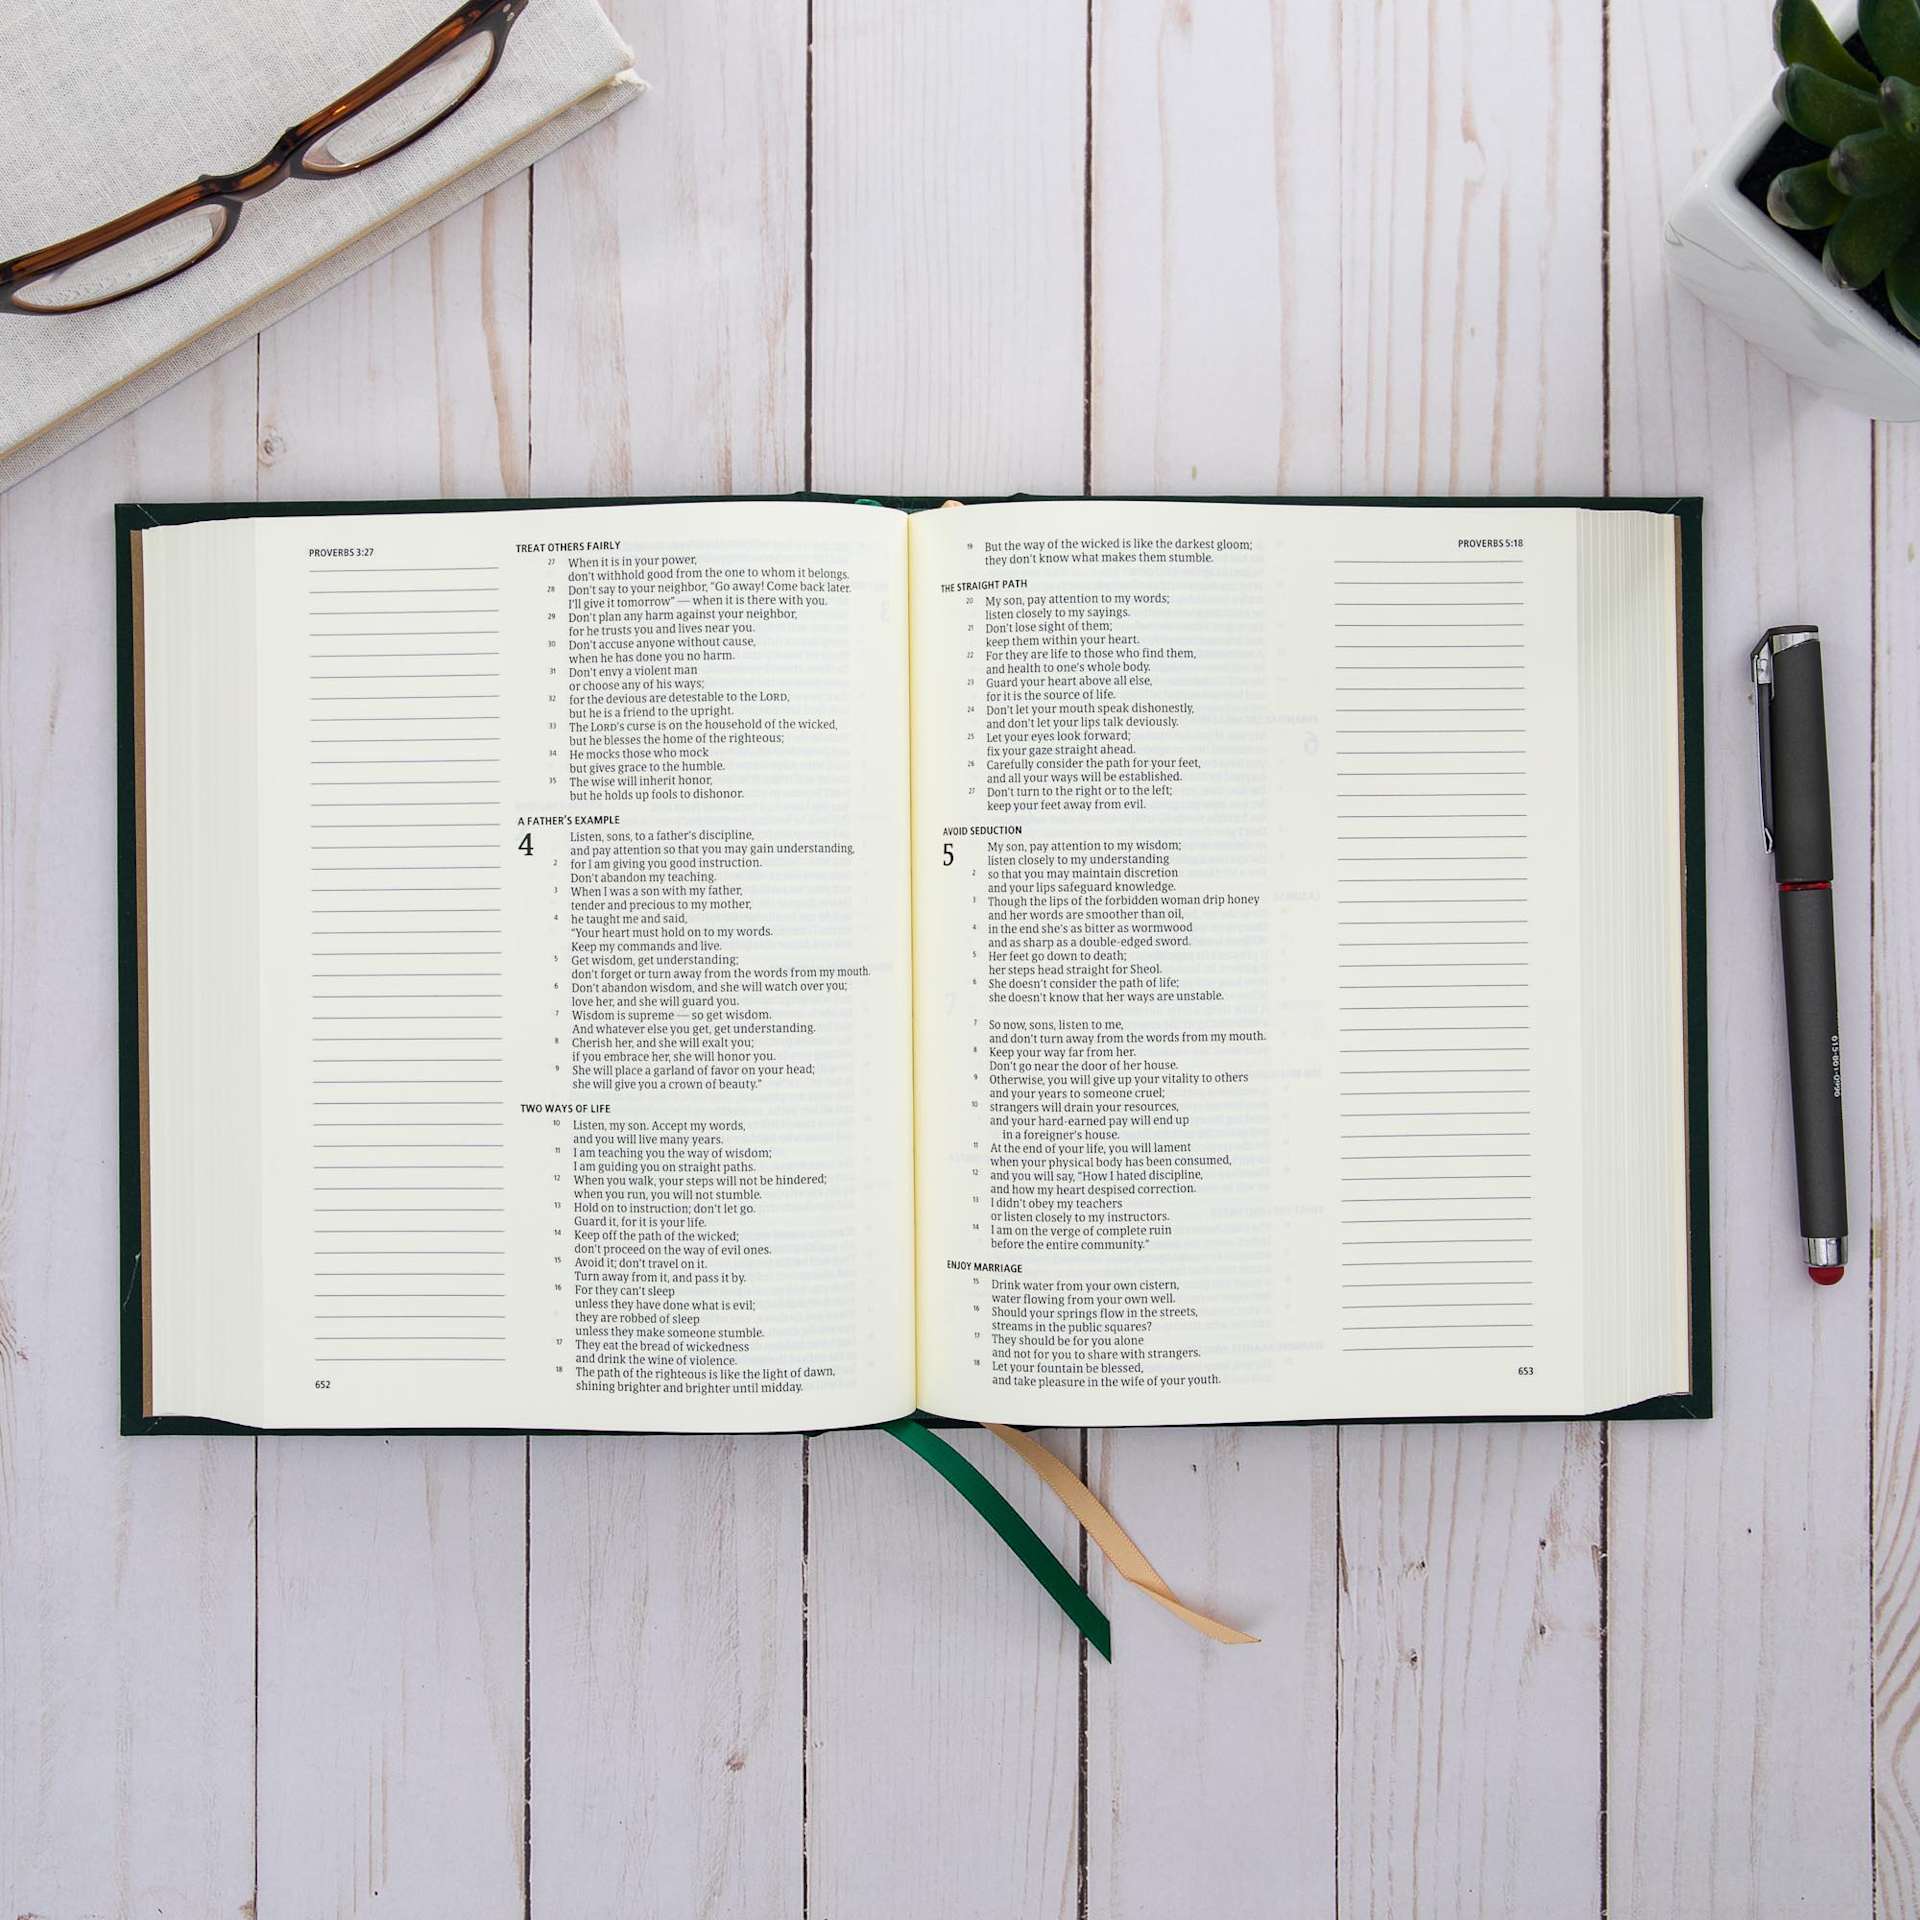 PROVERBS 3:27
TREAT OTHERS FAIRLY
27 When it is in your power,
don't withhold good from the one to whom it belongs.
28 Don't say to your neighbor, "Go away! Come back later.
I'll give it tomorrow" — when it is there with you.
29 Don't plan any harm against your neighbor,
for he trusts you and lives near you.
30 Don't accuse anyone without cause,
when he has done you no harm.
31 Don't envy a violent man
or choose any of his ways;
32 for the devious are detestable to the LORD,
but he is a friend to the upright.
33 The LORD's curse is on the household of the wicked,
but he blesses the home of the righteous;
34 He mocks those who mock
but gives grace to the humble.
35 The wise will inherit honor,
but he holds up fools to dishonor.
A FATHER'S EXAMPLE
4 Listen, sons, to a father's discipline,
and pay attention so that you may gain understanding,
2 for I am giving you good instruction.
Don't abandon my teaching.
3 When I was a son with my father,
tender and precious to my mother,
4 he taught me and said,
"Your heart must hold on to my words.
Keep my commands and live.
5 Get wisdom, get understanding;
don't forget or turn away from the words from my mouth.
6 Don't abandon wisdom, and she will watch over you;
love her, and she will guard you.
7 Wisdom is supreme — so get wisdom.
And whatever else you get, get understanding.
8 Cherish her, and she will exalt you;
if you embrace her, she will honor you.
9 She will place a garland of favor on your head;
she will give you a crown of beauty."
TWO WAYS OF LIFE
10 Listen, my son. Accept my words,
and you will live many years.
11 I am teaching you the way of wisdom;
I am guiding you on straight paths.
12 When you walk, your steps will not be hindered;
when you run, you will not stumble.
13 Hold on to instruction; don't let go.
Guard it, for it is your life.
14 Keep off the path of the wicked;
don't proceed on the way of evil ones.
15 Avoid it; don't travel on it.
Turn away from it, and pass it by.
16 For they can't sleep
unless they have done what is evil;
they are robbed of sleep
unless they make someone stumble.
17 They eat the bread of wickedness
and drink the wine of violence.
18 The path of the righteous is like the light of dawn,
shining brighter and brighter until midday.
652
PROVERBS 5:18
19 But the way of the wicked is like the darkest gloom;
they don't know what makes them stumble.
THE STRAIGHT PATH
20 My son, pay attention to my words;
listen closely to my sayings.
21 Don't lose sight of them;
keep them within your heart.
22 For they are life to those who find them,
and health to one's whole body.
23 Guard your heart above all else,
for it is the source of life.
24 Don't let your mouth speak dishonestly,
and don't let your lips talk deviously.
25 Let your eyes look forward;
fix your gaze straight ahead.
26 Carefully consider the path for your feet,
and all your ways will be established.
27 Don't turn to the right or to the left;
keep your feet away from evil.
AVOID SEDUCTION
5 My son, pay attention to my wisdom;
listen closely to my understanding
2 so that you may maintain discretion
and your lips safeguard knowledge.
3 Though the lips of the forbidden woman drip honey
and her words are smoother than oil,
4 in the end she's as bitter as wormwood
and as sharp as a double-edged sword.
5 Her feet go down to death;
her steps head straight for Sheol.
6 She doesn't consider the path of life;
she doesn't know that her ways are unstable.
7 So now, sons, listen to me,
and don't turn away from the words from my mouth.
8 Keep your way far from her.
Don't go near the door of her house.
9 Otherwise, you will give up your vitality to others
and your years to someone cruel;
10 strangers will drain your resources,
and your hard-earned pay will end up
in a foreigner's house.
11 At the end of your life, you will lament
when your physical body has been consumed,
12 and you will say, "How I hated discipline,
and how my heart despised correction.
13 I didn't obey my teachers
or listen closely to my instructors.
14 I am on the verge of complete ruin
before the entire community."
ENJOY MARRIAGE
15 Drink water from your own cistern,
water flowing from your own well.
16 Should your springs flow in the streets,
streams in the public squares?
17 They should be for you alone
and not for you to share with strangers.
18 Let your fountain be blessed,
and take pleasure in the wife of your youth.
653
615-801-0996